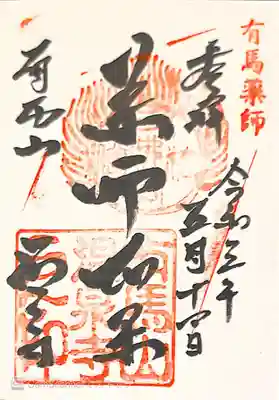 有馬薬師
奉拝
令和三年
五月十四日
薬師如来
有馬山
温泉寺